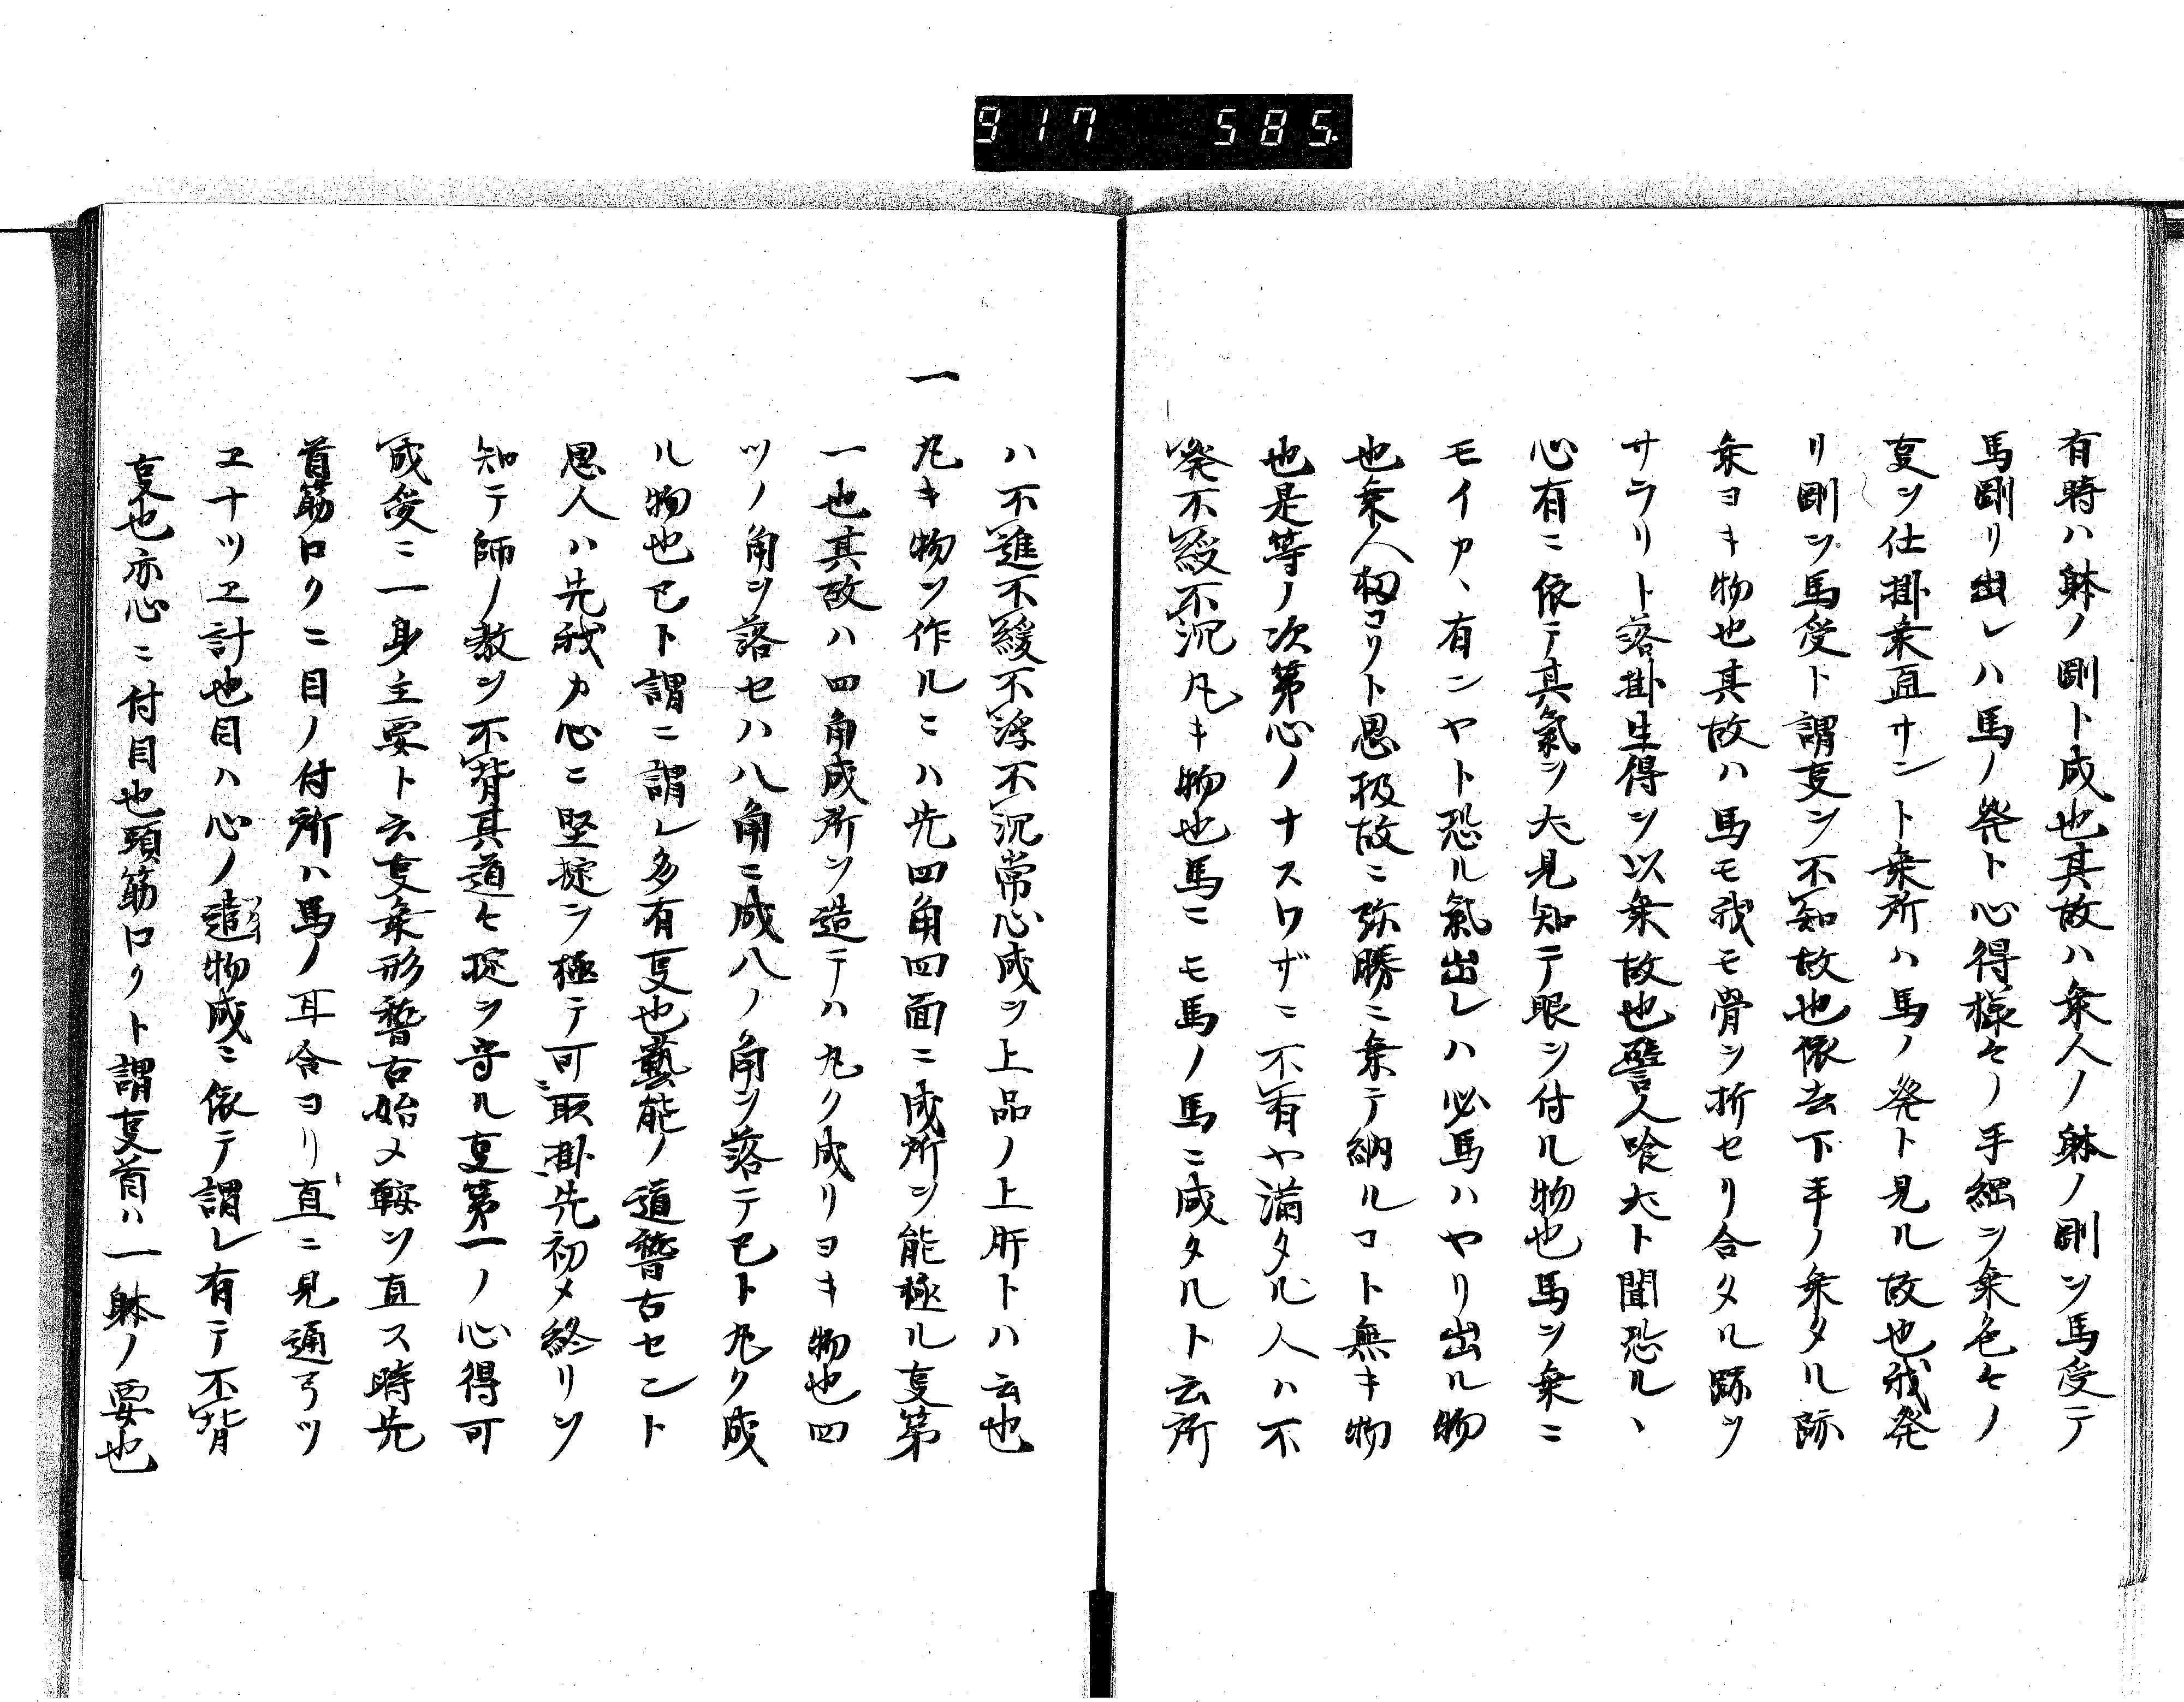 917 585.
有時ハ躰ノ剛ト成也其故ハ乗人ノ躰ノ剛ヲ馬受テ
馬剛リ出レハ馬ノ発ト心得様々ノ手綱ヲ乗色々ノ
㕝ヲ仕掛乗直サント乗所ハ馬ノ発ト見ル故也我発
リ剛ヲ馬受ト謂㕝ヲ不知故也依去下手ノ乗タル跡
乗ヨキ物也其故ハ馬モ我モ骨ヲ折セリ合タル跡ヲ
サラリト落掛生得ヲ以乗故也譬人喰犬ト聞恐ルヽ
心有ニ依テ其氣ヲ犬見知テ眼ヲ付ル物也馬ヲ乗ニ
モイカヽ有ンヤト恐ル氣出レハ必馬ハヤリ出ル物
也乗人コリト思扱故ニ弥勝ニ乗テ納ルコト無キ物
也是等ノ次第心ノナスワザニ不有ヤ満タル人ハ不
発不緩不沉凡キ物也馬ニモ馬ノ馬ニ成タルト云所
ハ不進不緩不浮不沉常心成ヲ上品ノ上肝トハ云也
一 丸キ物ヲ作ルニハ先四角四面ニ成所ヲ能極ル㕝第
一也其故ハ四角成所ヲ造テハ丸ク成リヨキ物也四
ツノ角ヲ落セハ八角ニ成八ノ角ヲ落テ已ト丸ク成
ル物也已ト謂ニ謂レ多有㕝也藝能ノ道稽古セント
思人ハ先我カ心ニ堅掟ヲ極テ可取掛先初メ終リヲ
知テ師ノ教ヲ不背其道々掟ヲ守ル㕝第一ノ心得可
成㕝ニ一身主要ト云㕝乗形稽古始メ鞍ヲ直ス時先
首筋ロクニ目ノ付所ハ馬ノ耳合ヨリ直ニ見通ヲツ
ヱナツヱ計也目ハ心ノ造物成ニ依テ謂レ有テ不背
㕝也亦心ニ付目也頭筋ロクト謂㕝首ハ一躰ノ要也